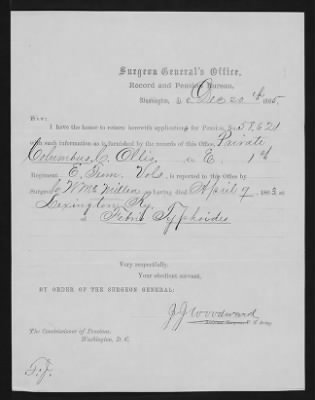 Surgeon General's Office,
Record and Pension Bureau,
Washington, D. C. Dec 20th 1865.
SIR:
I have the honor to return herewith application for Pension No. 57,621
with such information as is furnished by the records of this Office. Private
Columbus C. Ollis Co. E, 1st
Regiment E. Tenn. Vols. is reported to this Office by
Surgeon Wm. as having died April 7, 1863, at
Lexington Ky.
of Febris Typhoides
Very respectfully,
Your obedient servant,
BY ORDER OF THE SURGEON GENERAL:
J. J. Woodward
Surgeon, U. S. Army
The Commissioner of Pensions,
Washington, D. C.